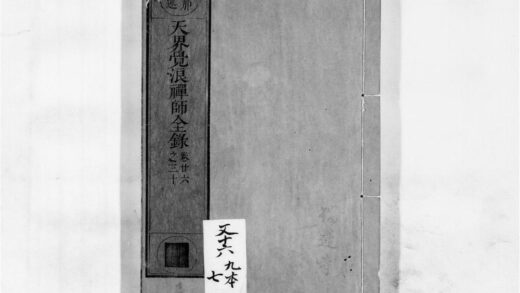 天界覺浪禪師全錄
卷廿六
之三十
又十六
九本
七